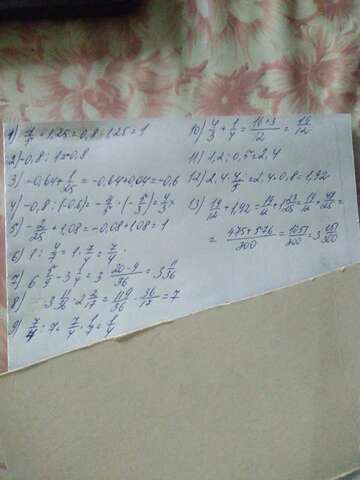 1) 4/5 · 1,25 = 0,8 · 1,25 = 1
2) -0,8 : 1 = -0,8
3) -0,64 + 1/25 = -0,64 + 0,04 = -0,6
4) -0,8 : (-0,6) = -4/5 · (-5/3) = 4/3
5) -2/25 + 1,08 = -0,08 + 1,08 = 1
6) 1 : 4/7 = 1 · 7/4 = 7/4
7) 6 5/9 - 3 1/4 = 3 20-9/36 = 3 11/36
8) 3 11/36 · 2 2/17 = 119/36 · 36/17 = 7
9) 7/4 : 7 = 7/4 · 1/7 = 1/4
10) 4/3 + 1/4 = 16+3/12 = 19/12
11) 1,2 : 0,5 = 2,4
12) 2,4 · 4/5 = 2,4 · 0,8 = 1,92
13) 19/12 + 1,92 = 19/12 + 1 23/25 = 19/12 + 48/25 =
= 475+576/300 = 1051/300 = 3 151/300